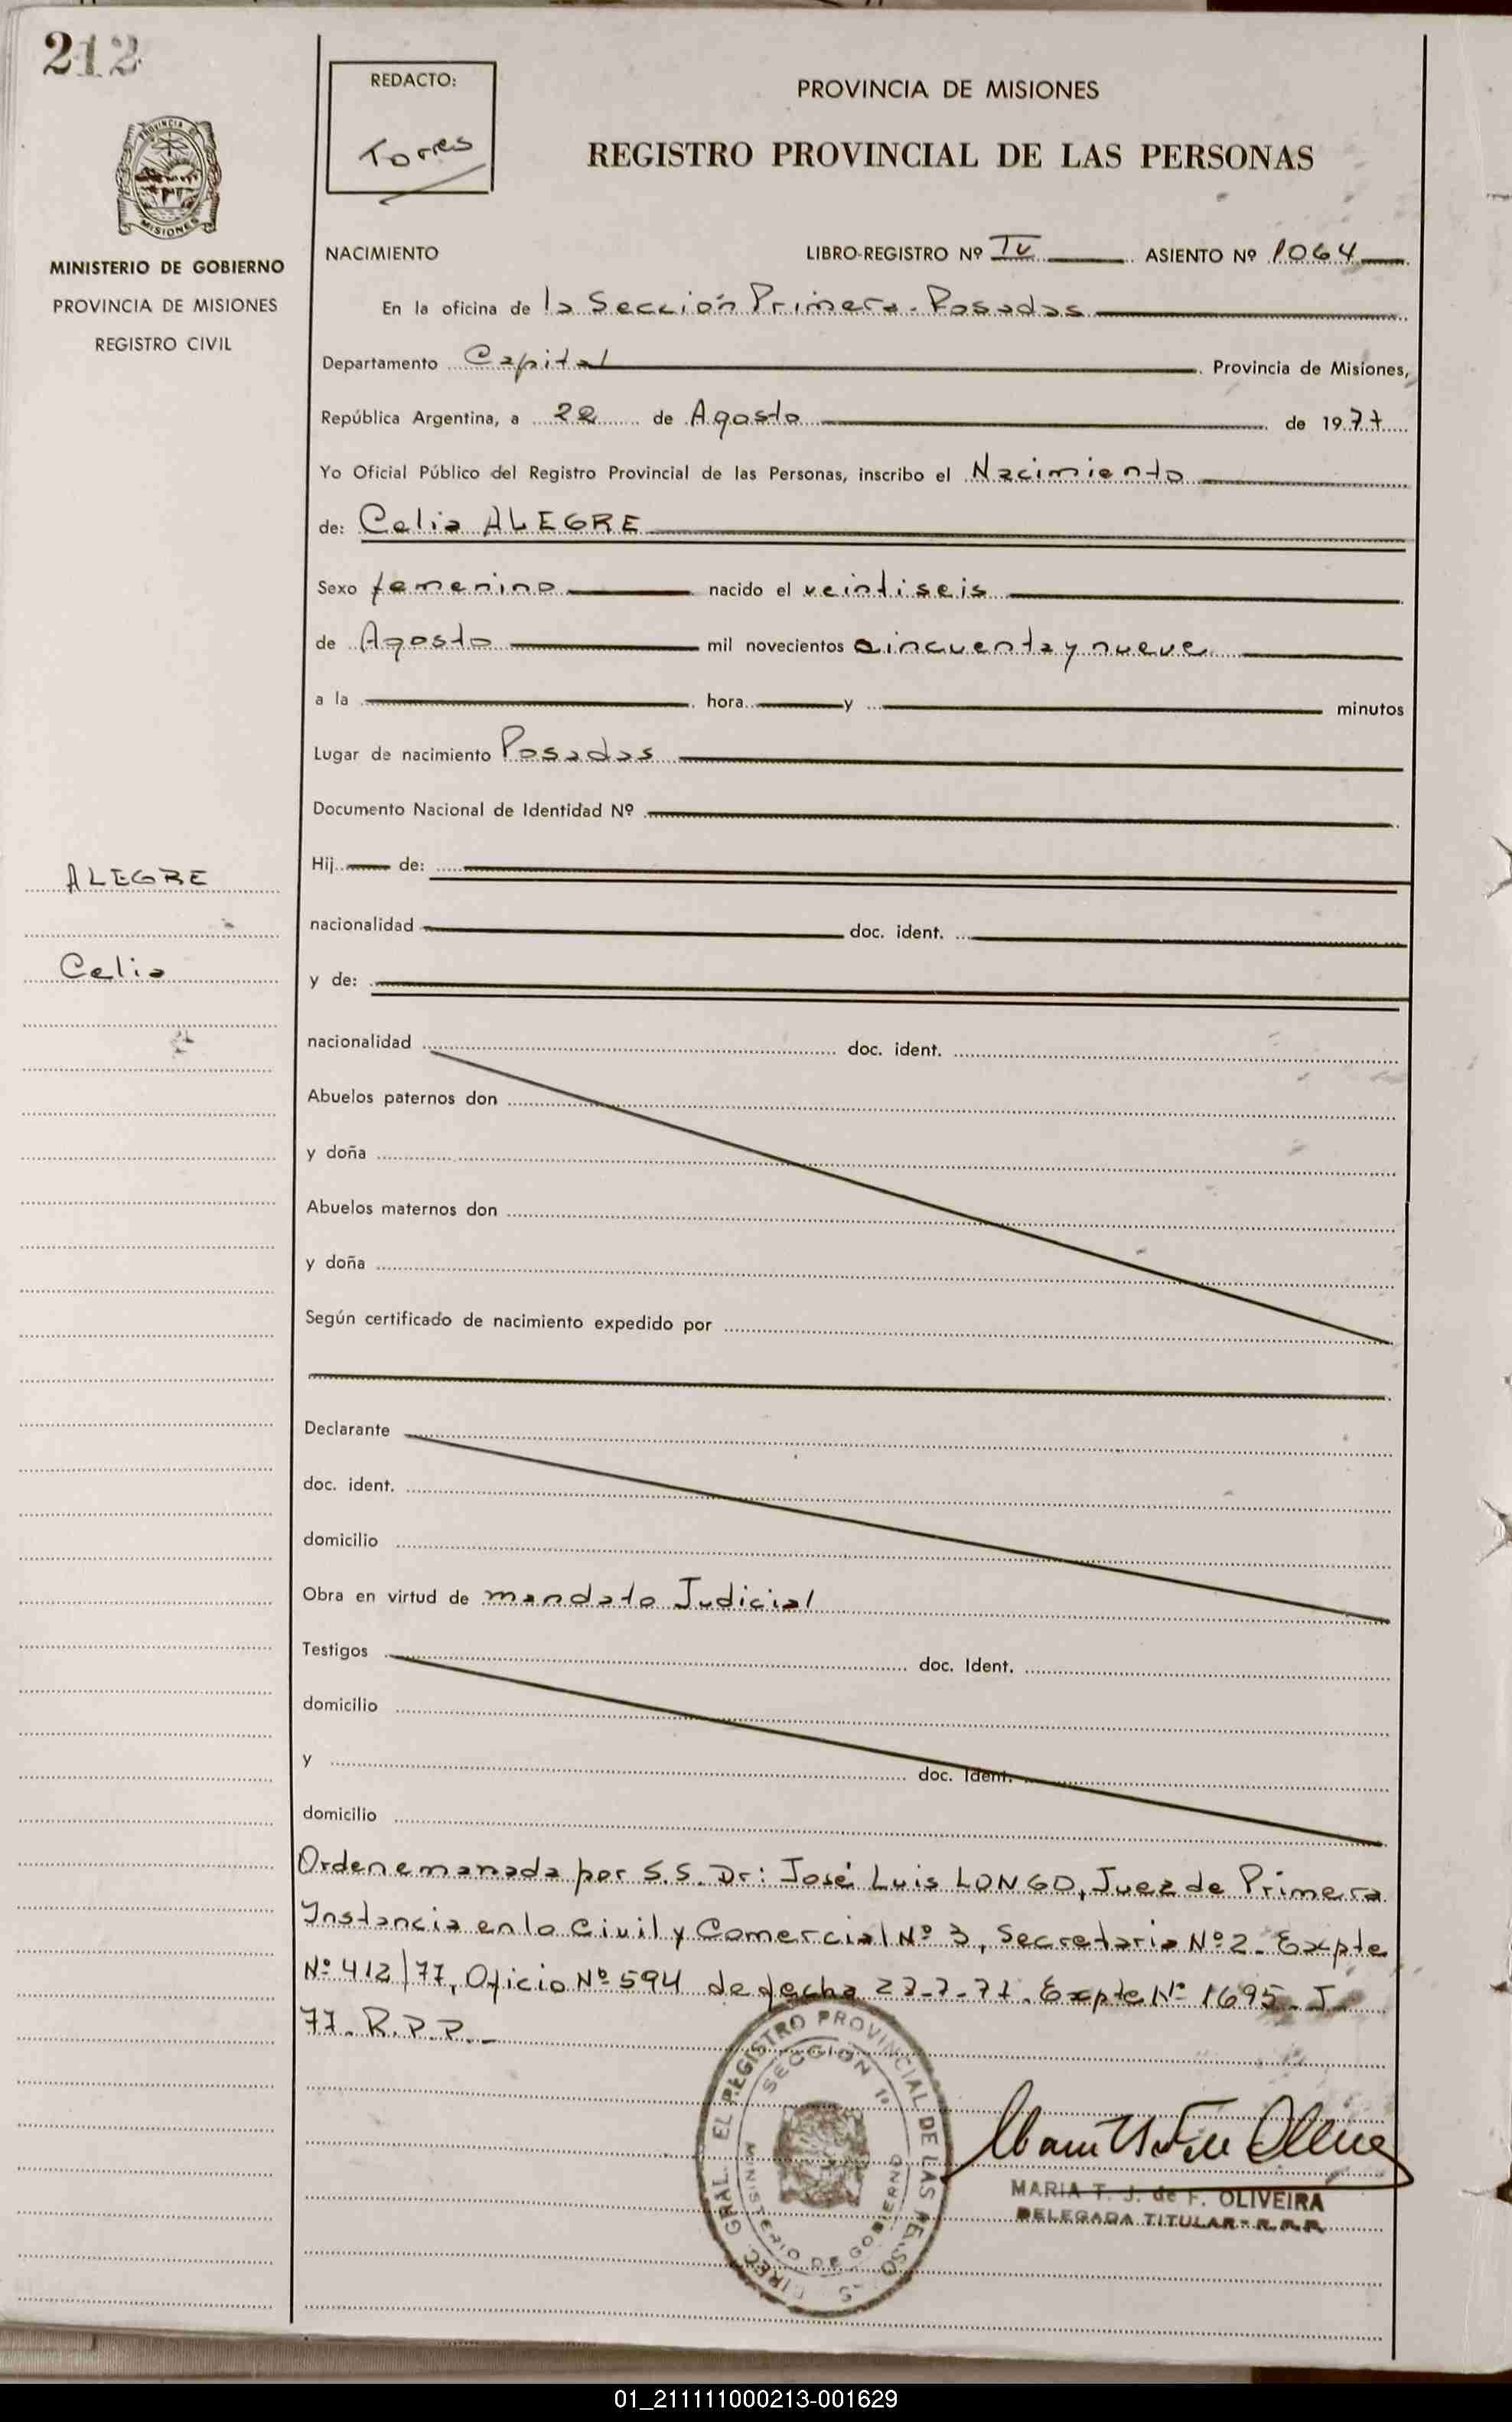 212
PROVINCIA DE
MISIONES
MINISTERIO DE GOBIERNO
PROVINCIA DE MISIONES
REGISTRO CIVIL
ALEGRE
Celia
REDACTO:
Torres
PROVINCIA DE MISIONES
REGISTRO PROVINCIAL DE LAS PERSONAS
NACIMIENTO LIBRO-REGISTRO Nº IV ASIENTO Nº 1064
En la oficina de la Sección Primera - Posadas
Departamento Capital Provincia de Misiones,
República Argentina, a 22 de Agosto de 1977
Yo Oficial Público del Registro Provincial de las Personas, inscribo el Nacimiento
de: Celia ALEGRE
Sexo femenino nacido el veintiseis
de Agosto mil novecientos cincuenta y nueve
a la hora y minutos
Lugar de nacimiento Posadas
Documento Nacional de Identidad Nº
Hij de:
nacionalidad doc. ident.
y de:
nacionalidad doc. ident.
Abuelos paternos don
y doña
Abuelos maternos don
y doña
Según certificado de nacimiento expedido por
Declarante
doc. ident.
domicilio
Obra en virtud de mandato Judicial
Testigos doc. Ident.
domicilio
y doc. Ident.
domicilio
Orden emanada por S.S. Dr: José Luis LONGO, Juez de Primera
Instancia en lo Civil y Comercial Nº 3, Secretaria Nº 2 - Expte
Nº 412/77, Oficio Nº 594 de fecha -7-77. Expte Nº 1695 - J
77. R.P.P. -
DIREC. GRAL. EL REGISTRO PROVINCIAL DE LAS PERSO S
SECCION 1ª
MINISTERIO DE GOBIERNO
MARIA T. J. de F. OLIVEIRA
DELEGADA TITULAR - R.P.P.
01_211111000213-001629